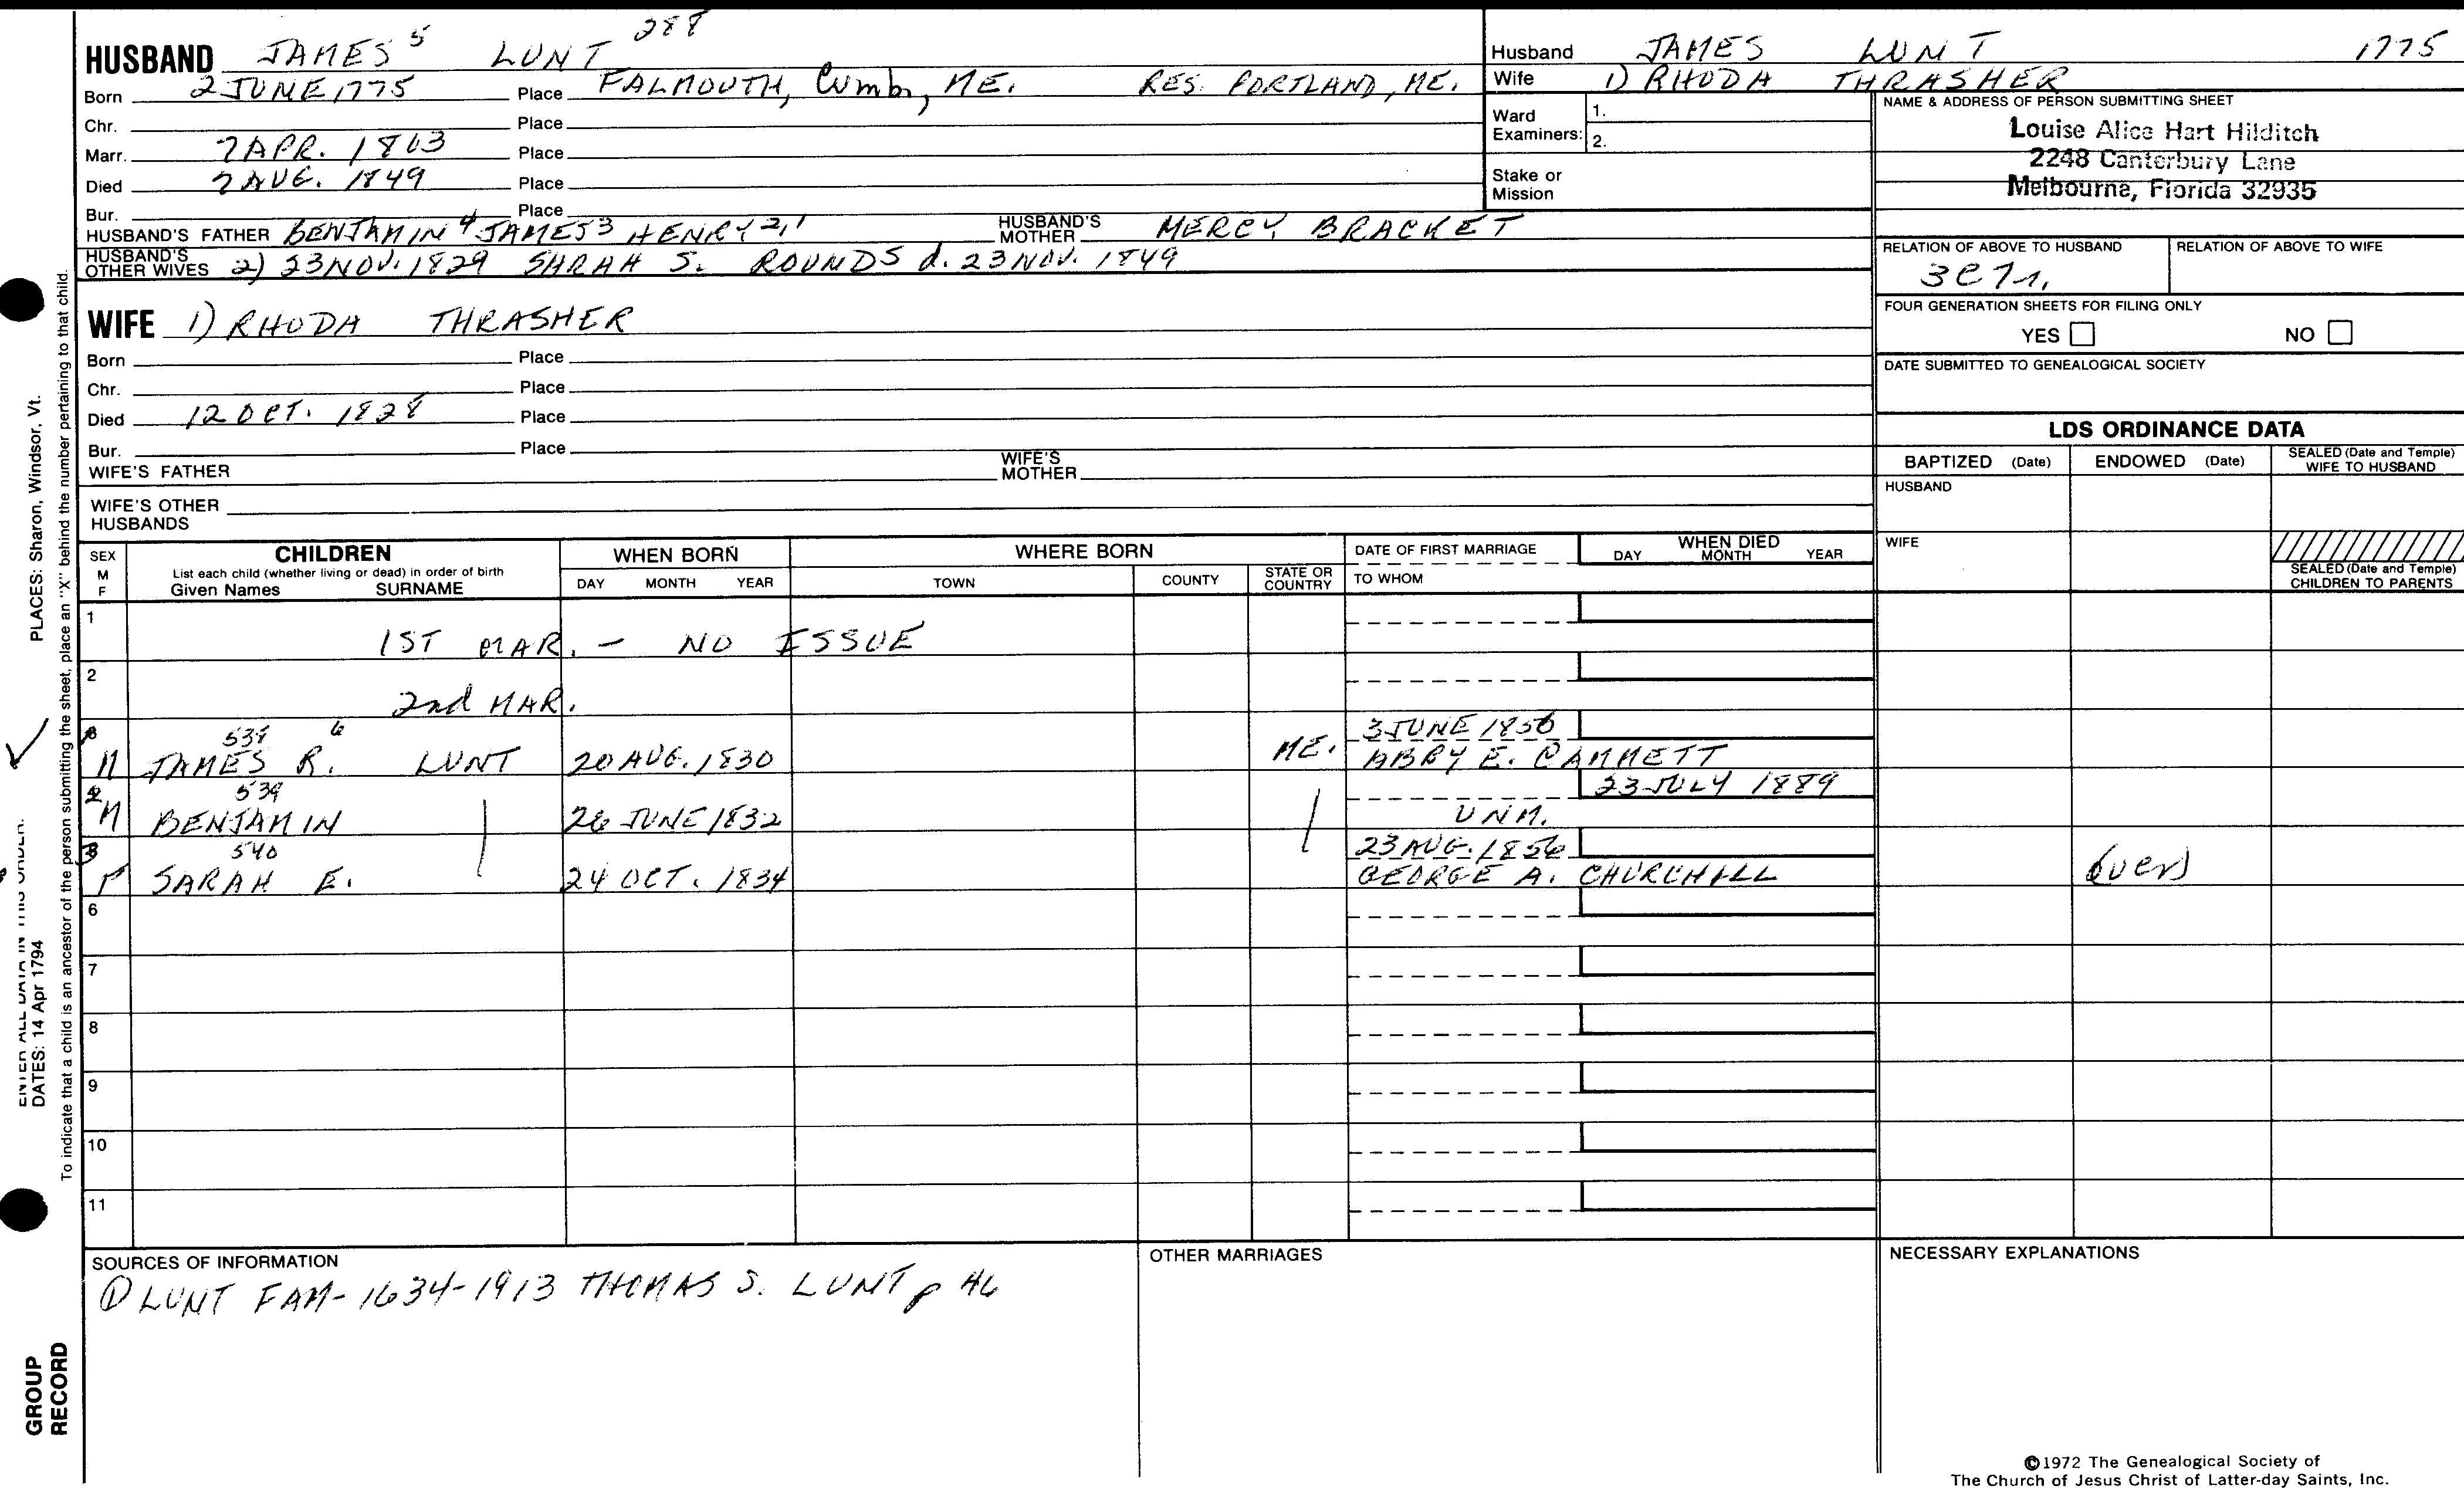 HUSBAND JAMES 5 LUNT 288
Born 2 JUNE 1775 Place FALMOUTH, Cumb, ME. RES. PORTLAND, ME.
Chr. Place
Marr. 7 APR. 1803 Place
Died 7 AUG. 1849 Place
Bur. Place
HUSBAND'S FATHER BENJAMIN 4 JAMES 3 HENRY 2,1 HUSBAND'S MOTHER MERCY BRACKET
HUSBAND'S OTHER WIVES 2) 23 NOV. 1829 SARAH S. ROUNDS d. 23 NOV. 1849
WIFE 1) RHODA THRASHER
Born Place
Chr. Place
Died 12 OCT. 1828 Place
Bur. Place
WIFE'S FATHER WIFE'S MOTHER
WIFE'S OTHER HUSBANDS
Husband JAMES LUNT 1775
Wife 1) RHODA THRASHER
Ward Examiners: 1.
2.
Stake or Mission
NAME & ADDRESS OF PERSON SUBMITTING SHEET
Louise Alice Hart Hilditch
2248 Canterbury Lane
Melbourne, Florida 32935
RELATION OF ABOVE TO HUSBAND RELATION OF ABOVE TO WIFE
FOUR GENERATION SHEETS FOR FILING ONLY
YES NO
DATE SUBMITTED TO GENEALOGICAL SOCIETY
LDS ORDINANCE DATA
BAPTIZED (Date) ENDOWED (Date) SEALED (Date and Temple) WIFE TO HUSBAND
HUSBAND
WIFE
SEALED (Date and Temple) CHILDREN TO PARENTS
SEX M F CHILDREN WHEN BORN WHERE BORN DATE OF FIRST MARRIAGE WHEN DIED
List each child (whether living or dead) in order of birth
Given Names SURNAME DAY MONTH YEAR TOWN COUNTY STATE OR COUNTRY TO WHOM DAY MONTH YEAR
1
1ST MAR. - NO ISSUE
2
2nd MAR.
538 6 3 JUNE 1856
M JAMES R. LUNT 20 AUG. 1830 ME. ABBY E. CAMMETT
539 23 JULY 1889
M BENJAMIN 26 JUNE 1832 UNM.
540 23 AUG. 1856
F SARAH E. 24 OCT. 1834 GEORGE A. CHURCHILL (over)
6
7
8
9
10
11
SOURCES OF INFORMATION OTHER MARRIAGES NECESSARY EXPLANATIONS
① LUNT FAM- 1634-1913 THOMAS S. LUNT p 46
©1972 The Genealogical Society of
The Church of Jesus Christ of Latter-day Saints, Inc.
To indicate that a child is an ancestor of the person submitting the sheet, place an "X" behind the number pertaining to that child.
PLACES: Sharon, Windsor, Vt.
ENTER ALL DATA IN THIS ORDER:
DATES: 14 Apr 1794
GROUP RECORD